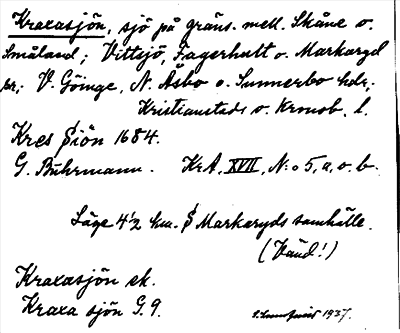 Kraxasjön, sjö på gräns. mell. Skåne o.
Småland; Vittsjö, Fagerhult o. Markaryd
snr; V. Göinge, N. Åsbo o. Sunnerbo hdr;
Kristianstads o. Kronob. l.
Kres Siön 1684.
G. Buhrmann. KrA, XVII, N:o 5, a, o. b.
Läge 4½ km. S Markaryds samhälle.
(Vänd!)
Kraxasjön ek.
Kraxa sjön G. 9.
1937.